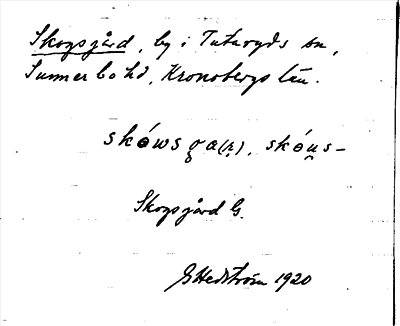 Skogsgård, by i Tutaryds sn,
Sunnerbo hd, Kronobergs län.
skówsga(r), skóu̯s-
Skogsgård G.
G Hedström 1920